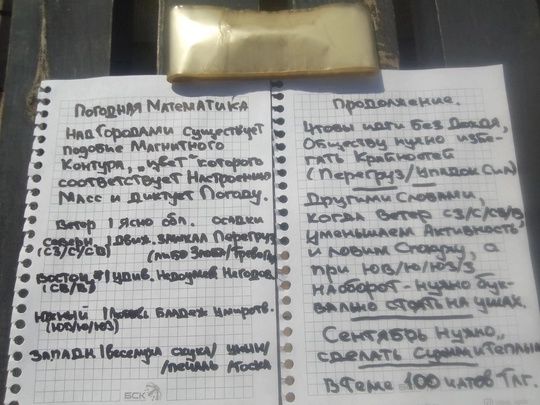 Погодная Математика
Над Городами существует
подобие Магнитного
Контура, "цвет" которого
соответствует Настроению
Масс и диктует Погоду.
Ветер | Ясно обл. осадки
Северн | Движ. Перегруз
(СЗ/С/СВ) (либо Злоба/Тревога)
Восточ | Удив. Недоумен Негодов
(СВ/В)
Южный | Блаженс Умиротв.
(ЮВ/Ю/ЮЗ)
Западн | Веселуха скука/уныни/
/печаль тоска
БСК
Продолжение.
Чтобы идти Без Дождя,
Обществу нужно избе-
гать Крайностей
(Перегруз/Упадок Сил)
Другими Словами,
когда Ветер СЗ/С/СВ/В
уменьшаем Активность,
и ловим Скуку, а
при ЮВ/Ю/ЮЗ/З
наоборот - нужно бук-
вально стоять на ушах.
Сентябрь нужно
сделать Сухим и Теплым
В теме 100 чатов Тлг.
БСК